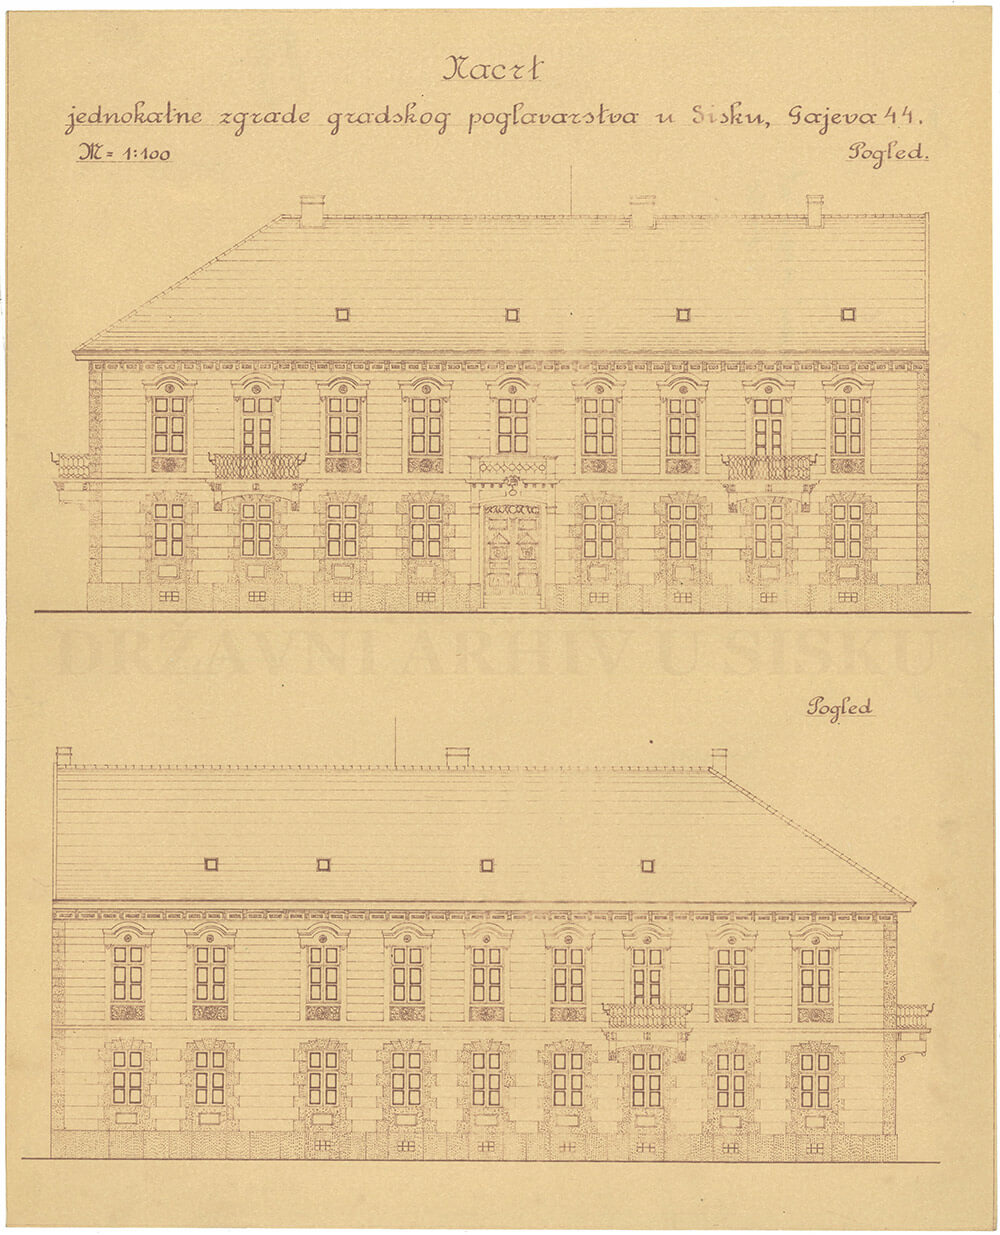 Nacrt
jednokatne zgrade gradskog poglavarstva u Sisku, Gajeva 44.
M = 1:100
Pogled.
DRŽAVNI ARHIV U SISKU
Pogled